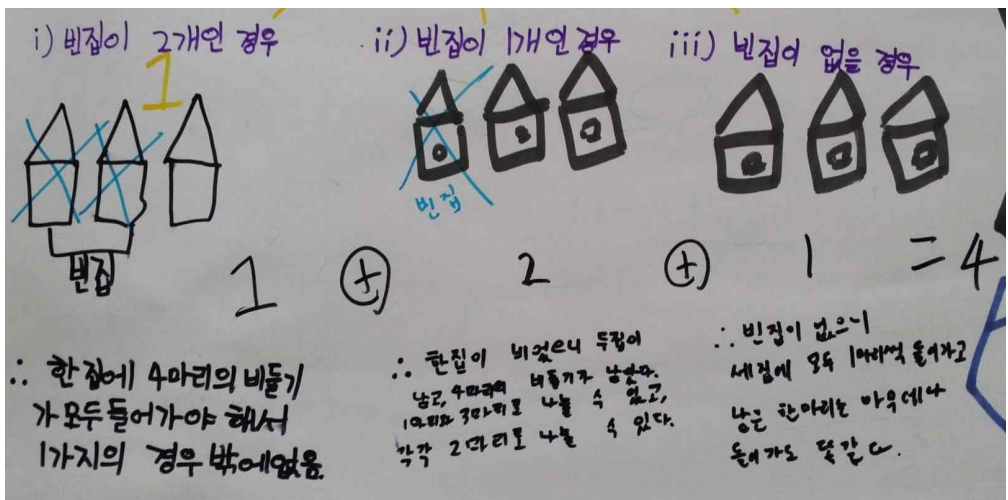 i) 빈집이 2개인 경우
1
빈집
1
∴ 한집에 4마리의 비둘기
가 모두 들어가야 해서
1가지의 경우 밖에 없음.
ii) 빈집이 1개인 경우
빈집
⊕ 2 ⊕
∴ 한집이 비었으니 두집이
남고, 4마리의 비둘기가 남았다.
1마리와 3마리로 나눌 수 있고,
각각 2마리로 나눌 수 있다.
iii) 빈집이 없을 경우
1 = 4
∴ 빈집이 없으니
세집에 모두 1마리씩 들어가고
남은 한마리는 아무데나
들어가도 똑같다.